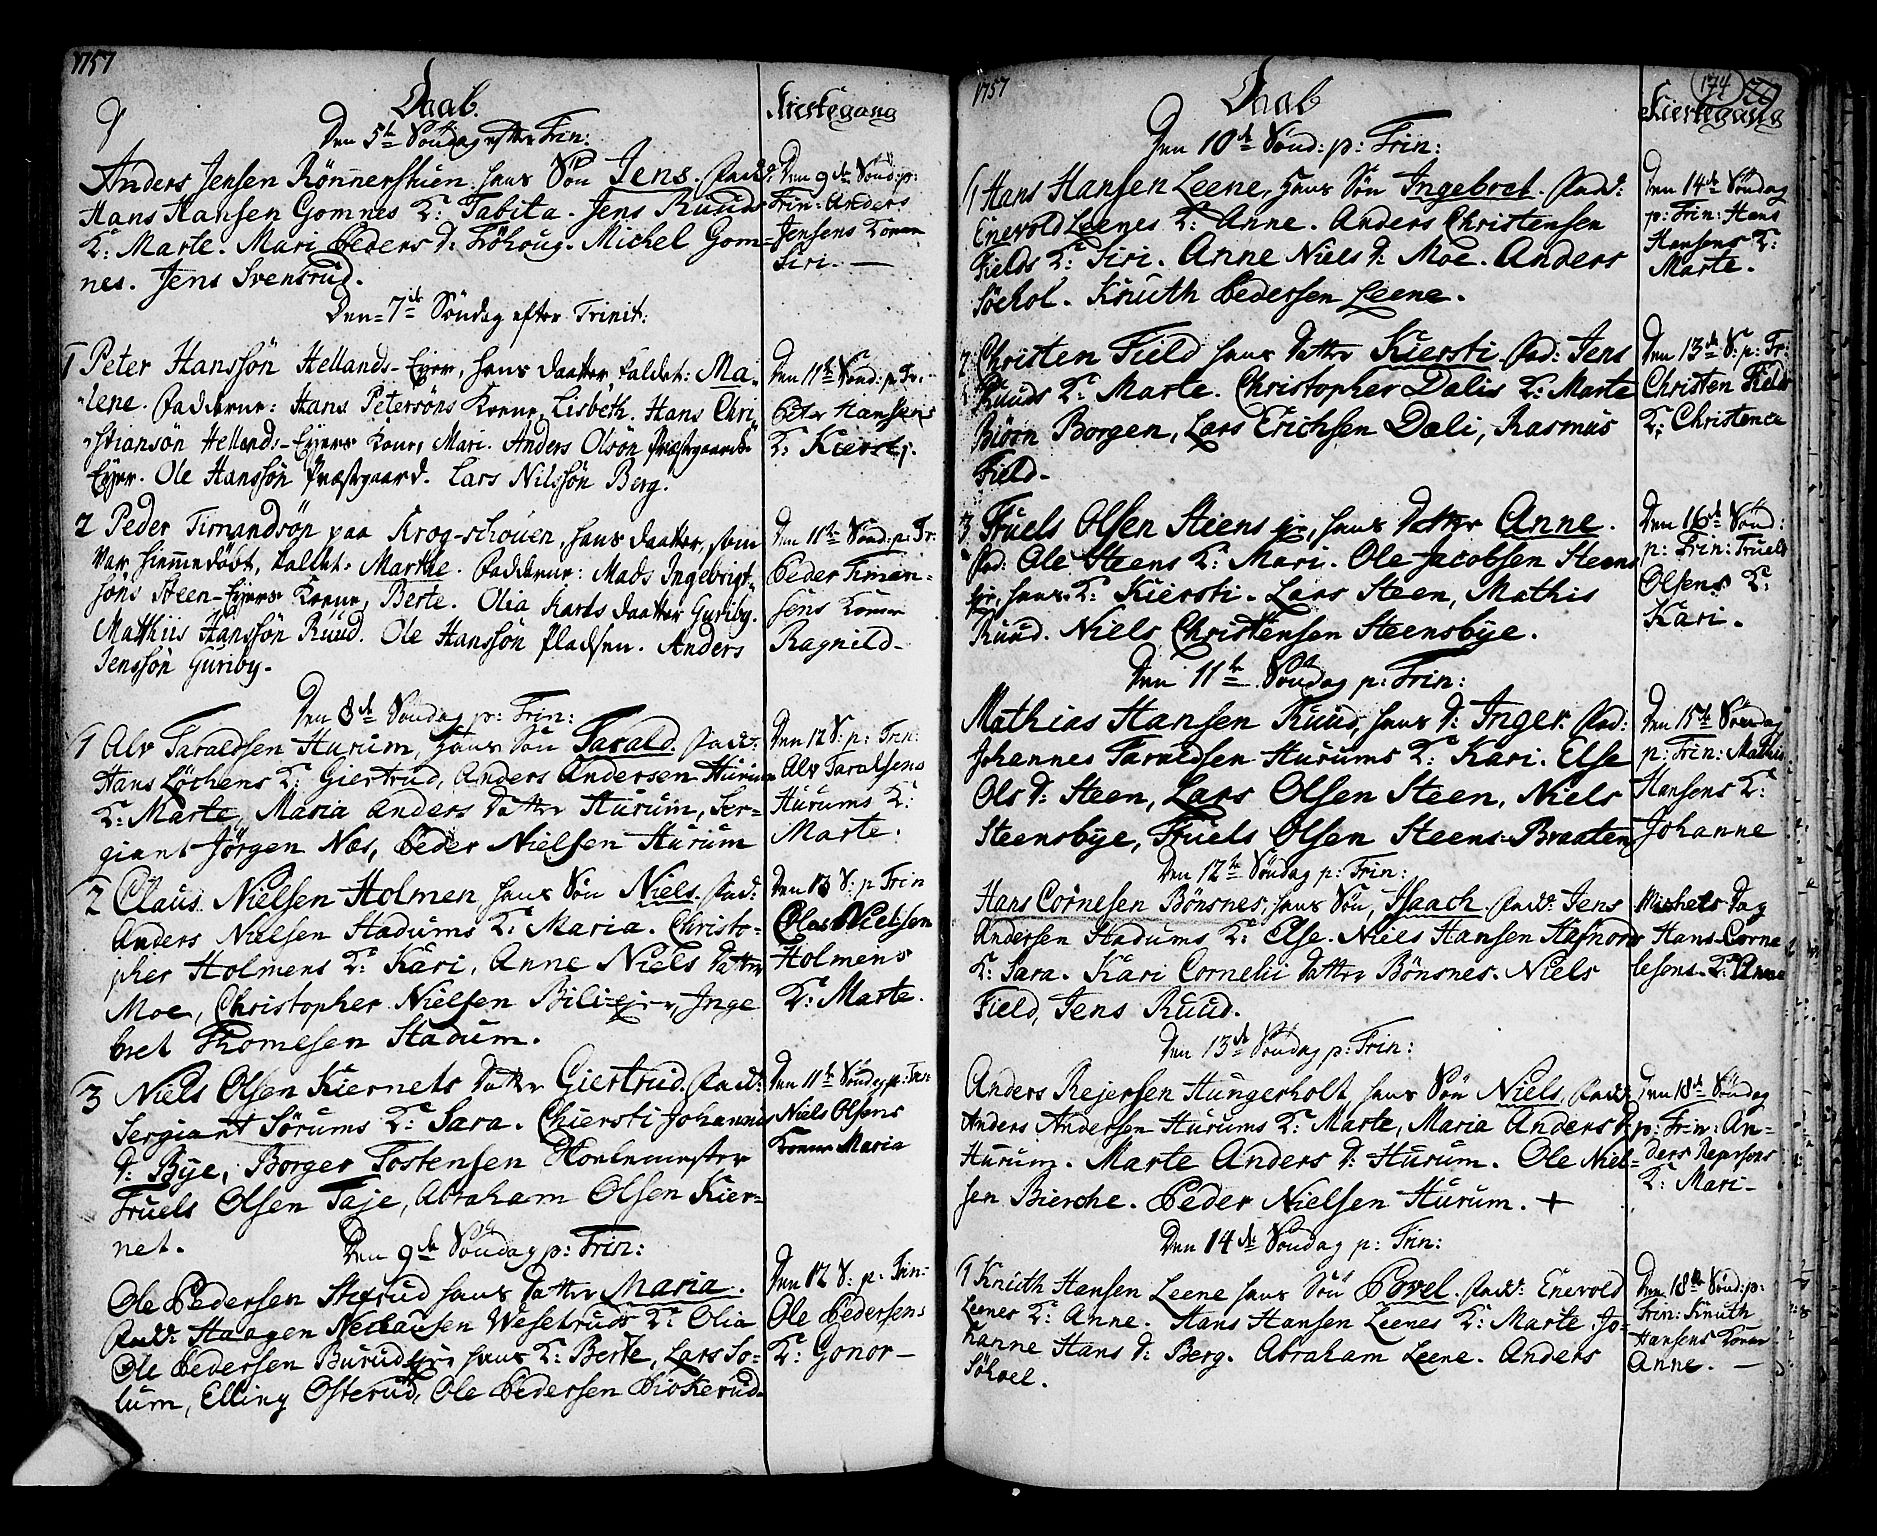 1757
Daab
Kirkegang
Den 5te Søndag efter Trin:
Anders Jensen Rönnershuen. hans Sön Jens. Fadd:
Hans Hansen Gomnes K: Tabita. Jens Ruuds
K: Marte. Mari Peders D: Fröhoug. Michel Gom=
nes. Jens Svensrud.
Den 9de Sönd: p:
Trin: Anders
Jensens Konen
Siri. —
Den 7de Söndag efter Trinit:
1 Peter Hanssön Hellands-Eyer, hans daatter kaldet: Ma-
lene. Fadderne: Hans Petersöns Kone, Lisbeth. Hans Chri
stiansön Hellands-Eyers Kone, Mari. Anders Olsön Præstgaards
Eyer. Ole Hanssön Præstgaard. Lars Nilssön Berg.
Den 11te Sönd: p: Tr:
Peter Hansens
K: Kiersti.
2 Peder Timandsön paa Krog-schouen, hans daatter, som
var hiemmedöbt, kaldet: Marthe. Fadderne: Mads Ingebrigt-
söns Steen-Eyers Kone, Berte. Olia Kards daatter Guriby.
Matthiis Hanssön Ruud. Ole Hanssön Pladsen. Anders
Jenssön Guriby.
Den 11te Sönd: p: Tr:
Peder Timan-
sens Konen
Ragnild-
Den 8de Söndag p: Trin:
1 Alv Taraldsen Hurum, hans Sön Tarald. Fadd:
Hans Löchens K: Giertrud, Anders Andersen Hurum
K: Marte, Maria Anders Datter Hurum, Ser-
giant Jörgen Næs, Peder Nielsen Hurum
Den 12 S: p: Trin:
Alv Taralsens
Hurums K:
Marte.
2 Claus Nielsen Holmen hans Sön Niels. Fad:
Anders Nielsen Stadums K: Maria. Christo-
pher Holmens K: Kari, Anne Niels Datter
Moe, Christopher Nielsen Bili-eier, Inge
bret Thomesen Stadum.
Den 13 S: p Trin
Claus Nielsen
Holmens
K: Marte.
3 Niels Olsen Kiernets Datter Giertrud. Fadd:
Sergiant Sörums K: Sara. Chiersti Johannis
D: Bye, Borger Tostensen
Truels Olsen Taje, Abraham Olsen Kier-
net.
Den 11te Söndag p: Trin:
Niels Olsens
Konen Maria
Den 9de Söndag p: Trin:
Ole Pedersen Stixrud hans Datter Maria.
Fadd: Haagen Weselruds K: Olia
Ole Pedersen Burud hans K: Berte, Lars So-
lum, Elling Osterud, Ole Pedersen
Den 12 S: p: Trin:
Ole Pedersens
K: Gonor—
1757
174
Daab
Kierkegang
Den 10de Sönd: p: Trin:
1 Hans Hansen Leene, hans Sön Ingebret. Fadd:
Enevold Leenes K: Anne. Anders Christensen
Fields K: Siri. Anne Niels D: Moe. Anders
Söehol. Knuth Pedersen Leene.
Den 14de Söndag
p: Trin: Hans
Hansens K:
Marte.
2 Christen Field hans Datter Kiersti. Fad: Jens
Ruuds K: Marte. Christopher Dalis K: Marte
Biörn Borgen, Lars Erichsen Dali, Rasmus
Field-
Den 13de S: p: Tr:
Christen Fields
K: Christence
3 Truels Olsen Steens eier, hans Datter Anne.
Fad: Ole Steens K: Mari. Ole Jacobsen Steens
eier, hans K: Kiersti. Lars Steen, Mathis
Ruud. Niels Christensen Steensbye.
Den 16de Sönd:
p: Trin: Truels
Olsens K:
Kari.
Den 11te Söndag p: Trin:
Mathias Hansen Ruud, hans D: Inger. Fad:
Johannes Taraldsen Hurums K: Kari. Else
Ols D: Steen, Lars Olsen Steen, Niels
Steensbye, Truels Olsen Steens-Braaten
Den 15de Söndag
p: Trin: Mathis
Hansens K:
Johanne
Den 12te Söndag p: Trin:
Hans Cornelsen Bönsnes, hans Sön, Isaach. Fadd: Jens
Andersen Stadums K: Else. Niels Hansen Hafnors
K: Sara. Kari Cornelii Datter Bönsnes. Niels
Field, Jens Ruud.
Michels Dag
Hans Corne
lesens K: Anne
Den 13de Söndag p: Trin:
Anders Rejersen Hungerholt, hans Sön Niels, Fadd:
Anders Andersen Hurums K: Marte, Maria Anders D:
Hurum. Marte Anders D: Hurum. Ole Niel-
sen Bierche. Peder Nielsen Hurum. +
Den 18de Söndag
p: Trin: An-
ders Rejersens
K: Mari-
Den 14de Söndag p: Trin:
1 Knuth Hansen Leene hans Sön Povel. Fadd: Enevold
Leenes K: Anne. Hans Hansen Leenes K: Marte. Jo-
hanne Hans D: Berg. Abraham Leene. Anders
Söhoel.
Den 18de Sönd: p:
Trin: Knuth
Hansens Konen
Anne. —